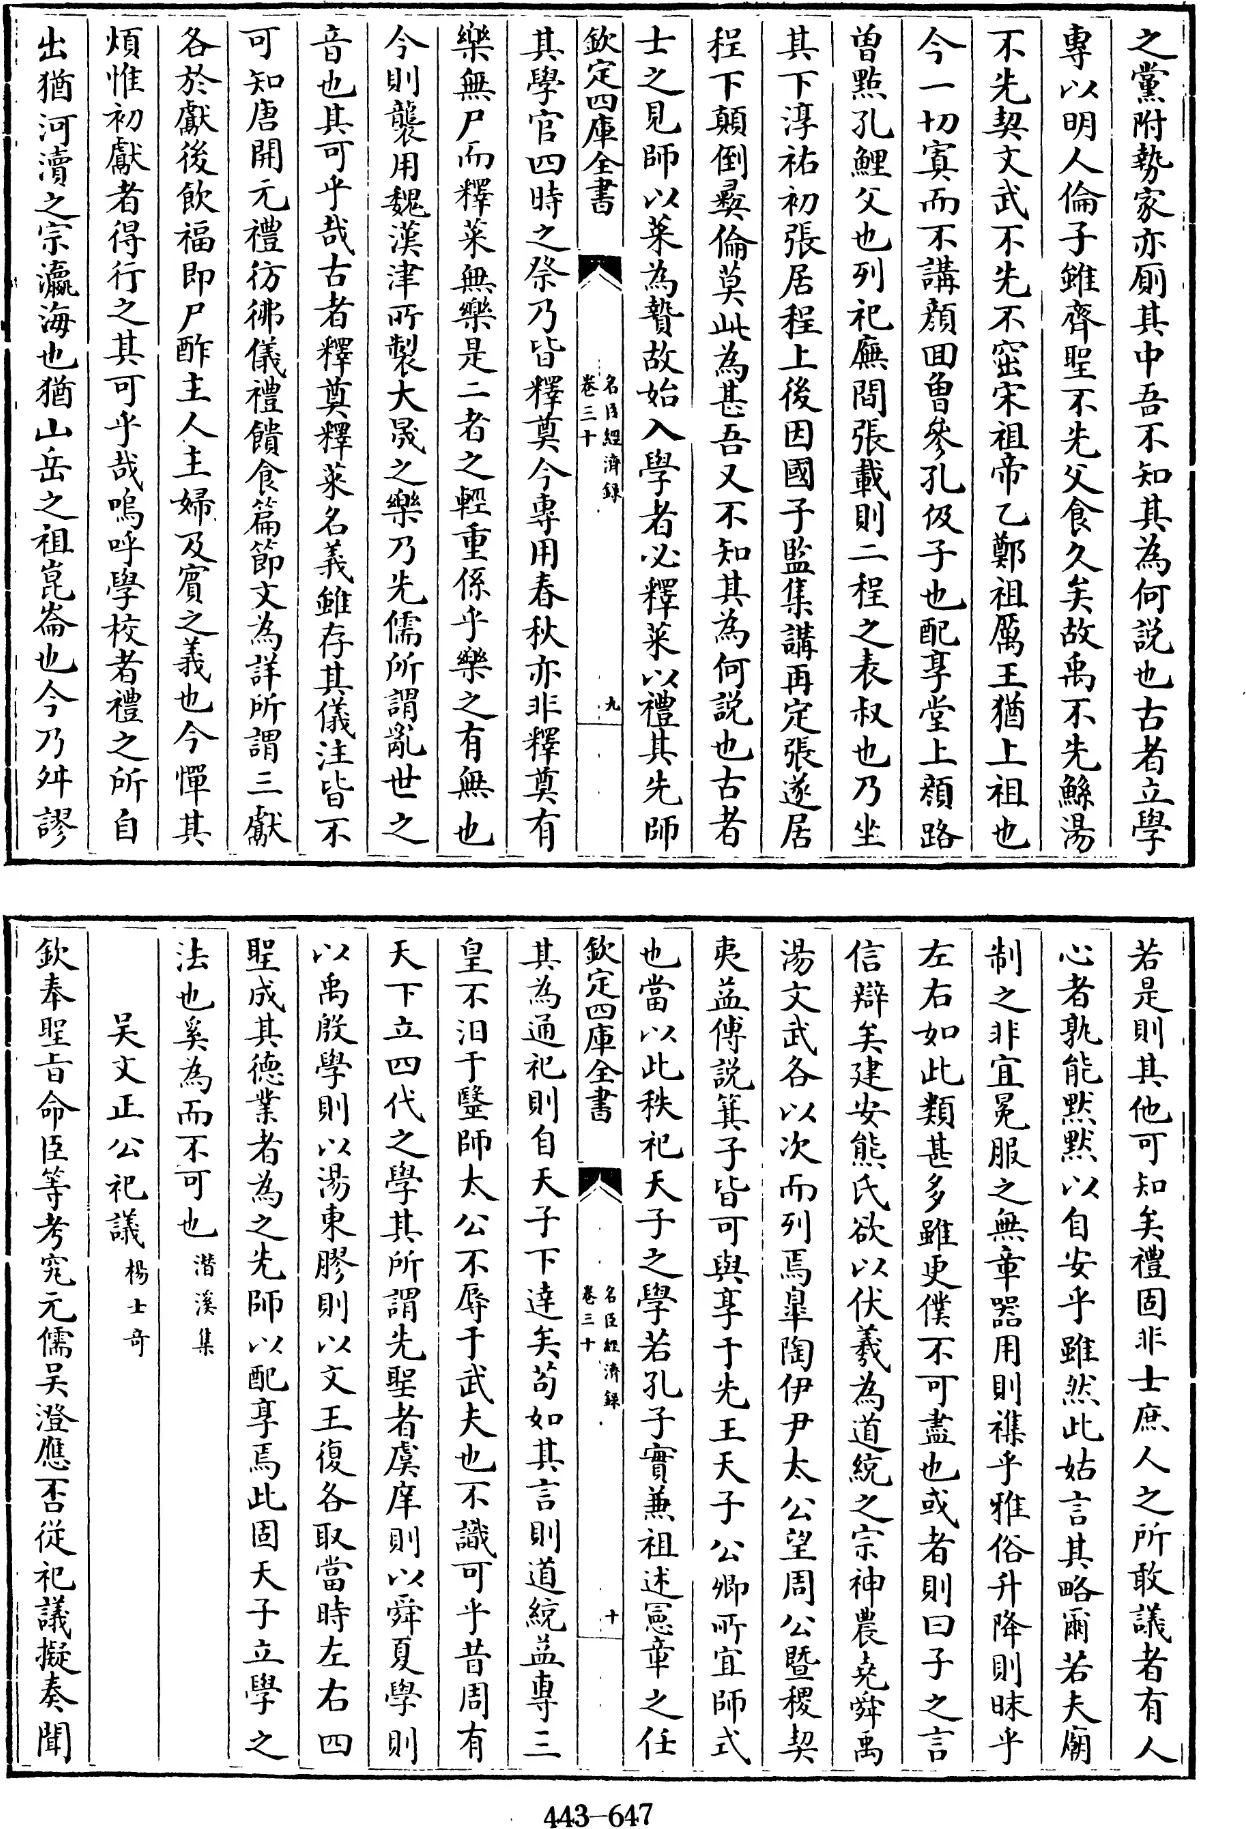 之黨附勢家亦廁其中吾不知其為何説也古者立學
專以明人倫子雖齊聖不先父食久矣故禹不先鯀湯
不先契文武不先不窋宋祖帝乙鄭祖厲王猶上祖也
今一切寘而不講顔回曽參孔伋子也配享堂上顔路
曽點孔鯉父也列祀廡間張載則二程之表叔也乃坐
其下淳祐初張居程上後因國子監集講再定張遂居
程下顛倒彞倫莫此為甚吾又不知其為何説也古者
士之見師以菜為贄故始入學者必釋菜以禮其先師
欽定四庫全書
名臣經濟録
卷三十
九
其學官四時之祭乃皆釋奠今專用春秋亦非釋奠有
樂無尸而釋菜無樂是二者之輕重係乎樂之有無也
今則襲用魏漢津所製大晟之樂乃先儒所謂亂世之
音也其可乎哉古者釋奠釋菜名義雖存其儀注皆不
可知唐開元禮彷彿儀禮饋食篇節文為詳所謂三獻
各於獻後飲福即尸酢主人主婦及賓之義也今憚其
煩惟初獻者得行之其可乎哉嗚呼學校者禮之所自
出猶河瀆之宗瀛海也猶山岳之祖崑崙也今乃舛謬
若是則其他可知矣禮固非士庶人之所敢議者有人
心者孰能黙黙以自安乎雖然此姑言其略爾若夫廟
制之非宜冕服之無章器用則襍乎雅俗升降則昧乎
左右如此類甚多雖更僕不可盡也或者則曰子之言
信辯矣建安熊氏欲以伏羲為道統之宗神農堯舜禹
湯文武各以次而列焉臯陶伊尹太公望周公暨稷契
夷益傅説箕子皆可與享于先王天子公卿所宜師式
也當以此秩祀天子之學若孔子實兼祖述憲章之任
欽定四庫全書
名臣經濟録
卷三十
十
其為通祀則自天子下達矣苟如其言則道統益專三
皇不汨于醫師太公不辱于武夫也不識可乎昔周有
天下立四代之學其所謂先聖者虞庠則以舜夏學則
以禹殷學則以湯東膠則以文王復各取當時左右四
聖成其德業者為之先師以配享焉此固天子立學之
法也奚為而不可也 潛溪集
吴文正公祀議 楊士奇
欽奉聖旨命臣等考究元儒吴澄應否從祀議擬奏聞
443-647